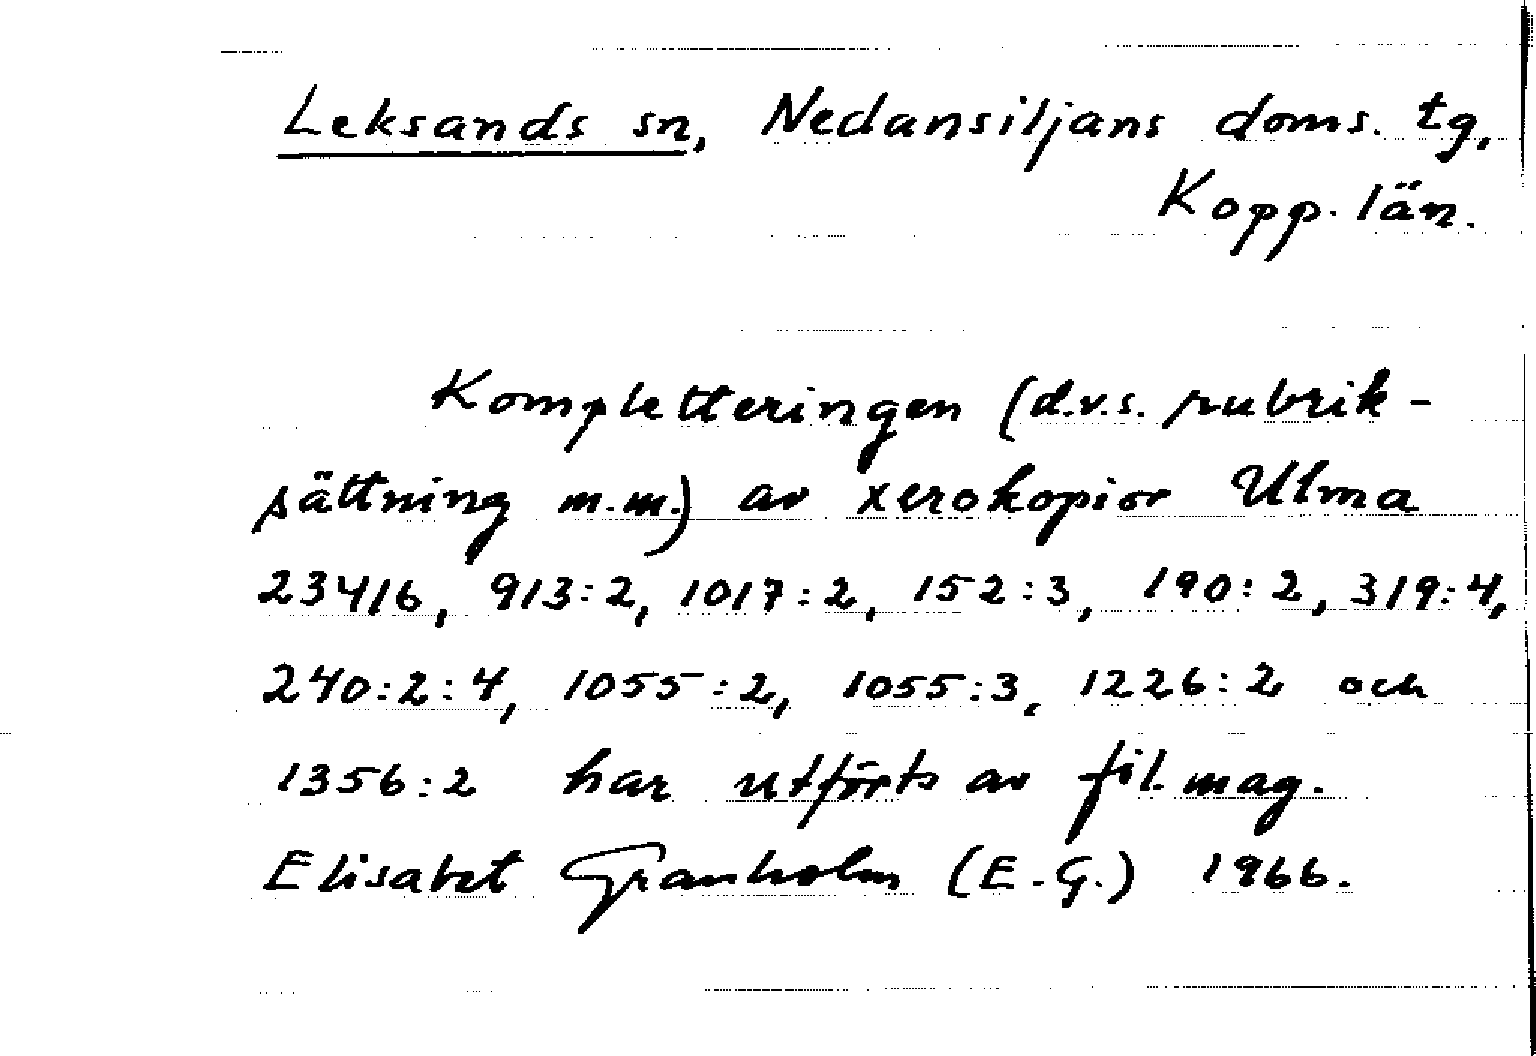 Leksands sn, Nedansiljans doms. tg,
Kopp. län.
Kompletteringen (d.v.s. rubrik-
sättning m.m.) av xerokopior Ulma
23416, 913:2, 1017:2, 152:3, 190:2, 319:4,
240:2:4, 1055:2, 1055:3, 1226:2 och
1356:2 har utförts av fil. mag.
Elisabet Granholm (E.G.) 1966.